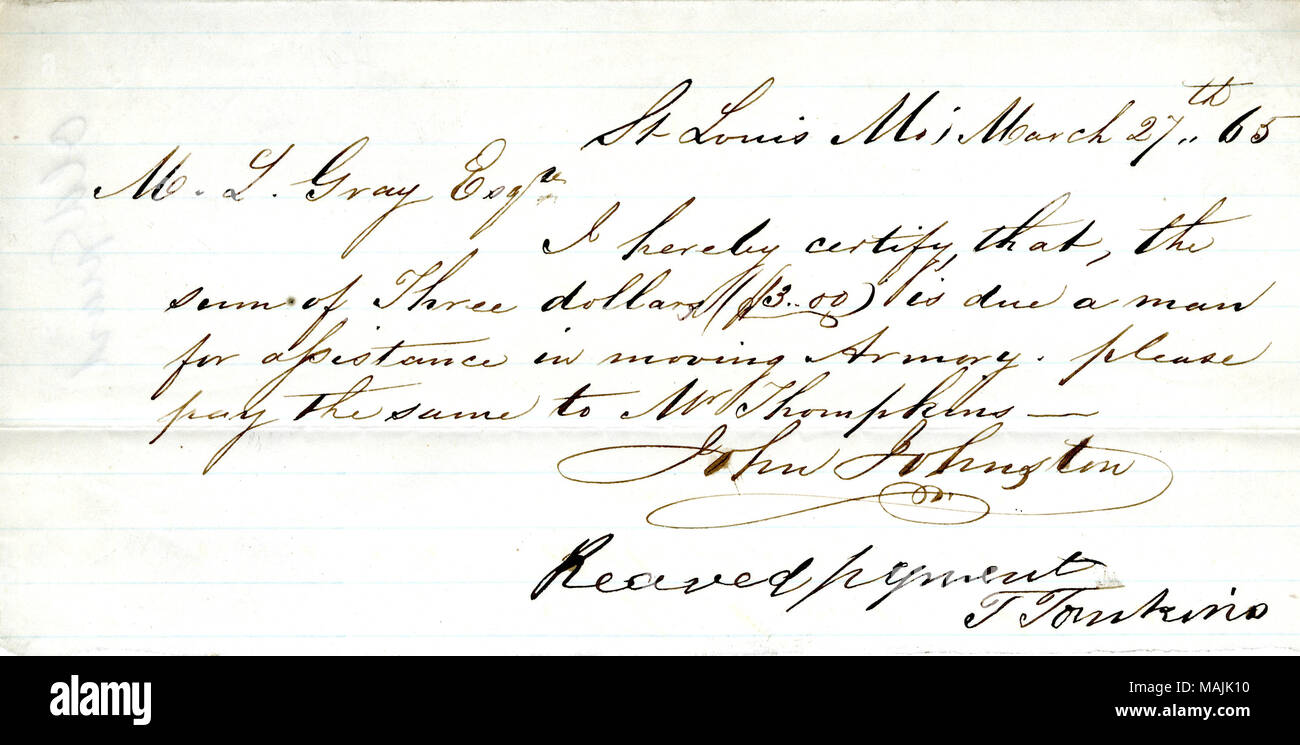 St Louis Mo, March 27th 65
M. L. Gray Esqre
I hereby certify, that, the
sum of Three dollars ($3.00) is due a man
for assistance in moving Armory. please
pay the same to Mr Thompkins —
John Johnston
Reaved pyment
T Tomkins
alamy
Image ID: MAJK10
www.alamy.com